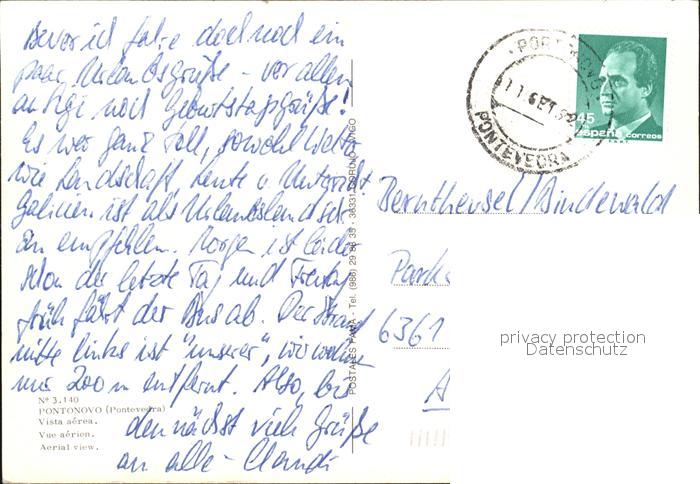 Bevor ich fahre doch noch ein
paar Urlaubsgrüße - vor allem
an Agi noch Geburtstagsgrüße!
Es war ganz toll, sowohl Wetter
wie Landschaft, Leute u. Unterkunft
Galicien ist als Urlaubsland sehr
zu empfehlen. Morgen ist leider
schon der letzte Tag und Freitag
früh fährt der Bus ab. Der Strand
mitte links ist "unserer", wir wohnen
nur 200 m entfernt. Also, bis
demnächst viele Grüße
an alle - Claudi
Nº 3.140
PONTONOVO (Pontevedra)
Vista aérea.
Vue aérien.
Aerial view.
POSTALES FAMA - Tel. (986) 29 88 35 - 36331 CORUJO-VIGO
PONTEVEDRA
45
españa correos
Berntheusel/Bindewald
Park
6361
A
privacy protection
Datenschutz